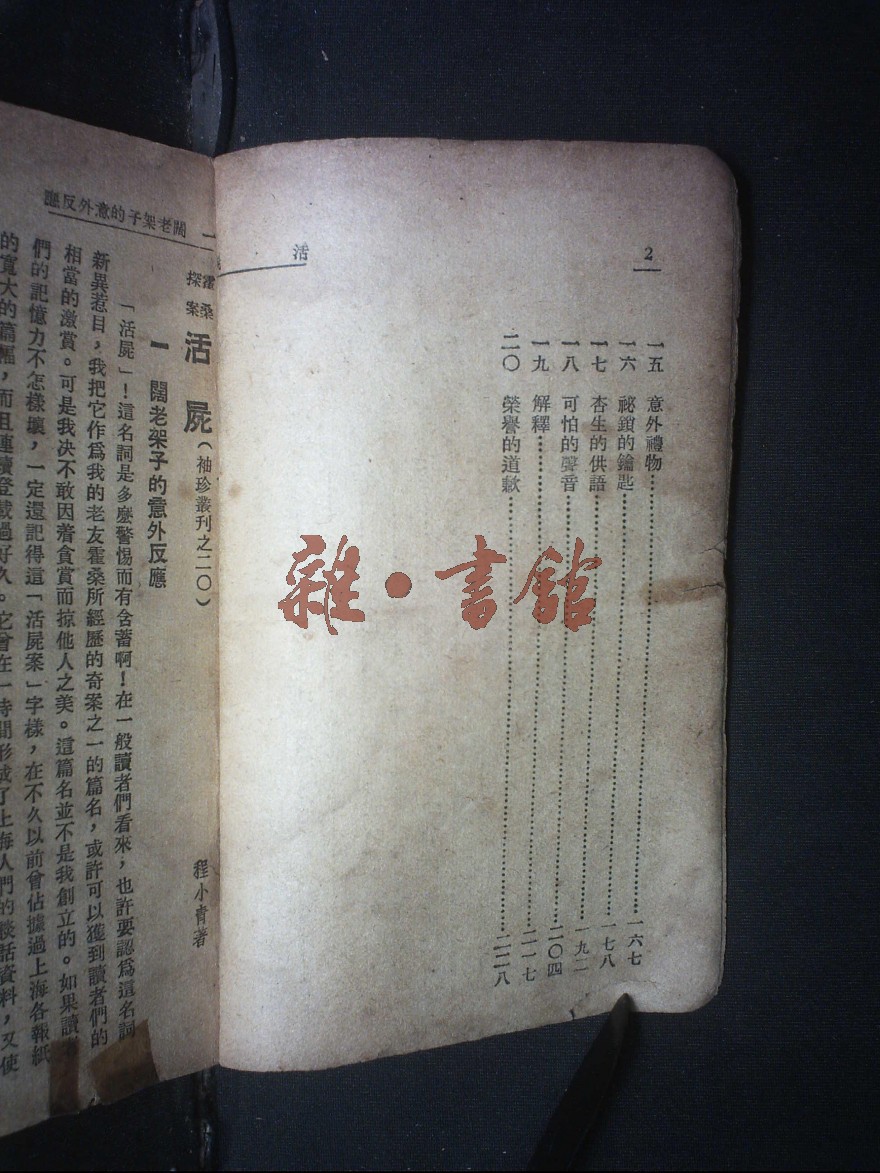 2
活
一五　意外禮物……一六七
一六　祕鎖的鑰匙……一七八
一七　杏生的供語……一九二
一八　可怕的聲音……二〇四
一九　解釋……二一七
二〇　榮譽的道歉……二二八
雜・書館
一　闊老架子的意外反應
霍桑探案　活屍（袖珍叢刊之二〇）　程小青著
一　闊老架子的意外反應
「活屍」！這名詞是多麼警惕而有含蓄啊！在一般讀者們看來，也許要認爲這名詞
新異惹目，我把它作爲我的老友霍桑所經歷的奇案之一的篇名，或許可以獲到讀者們的
相當的激賞。可是我决不敢因着貪賞而掠他人之美。這篇名並不是我創立的。如果讀
們的記憶力不怎樣壞，一定還記得這「活屍案」字樣，在不久以前曾佔據過上海各報紙
的寬大的篇幅，而且連續登載過好久。它曾在一時間形成了上海人們的談話資料，又使